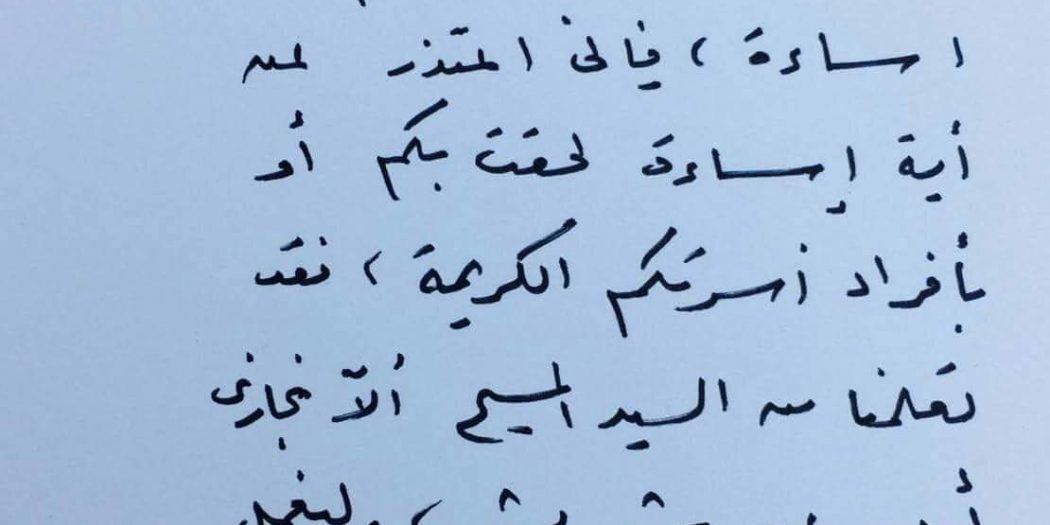 اساءة، فإنى اعتذر لسه
أية إساءة لحقت بكم أو
بأفراد أسرتكم الكريمة، فقد
تعلمنا من السيد المسيح ألاّ نجازى